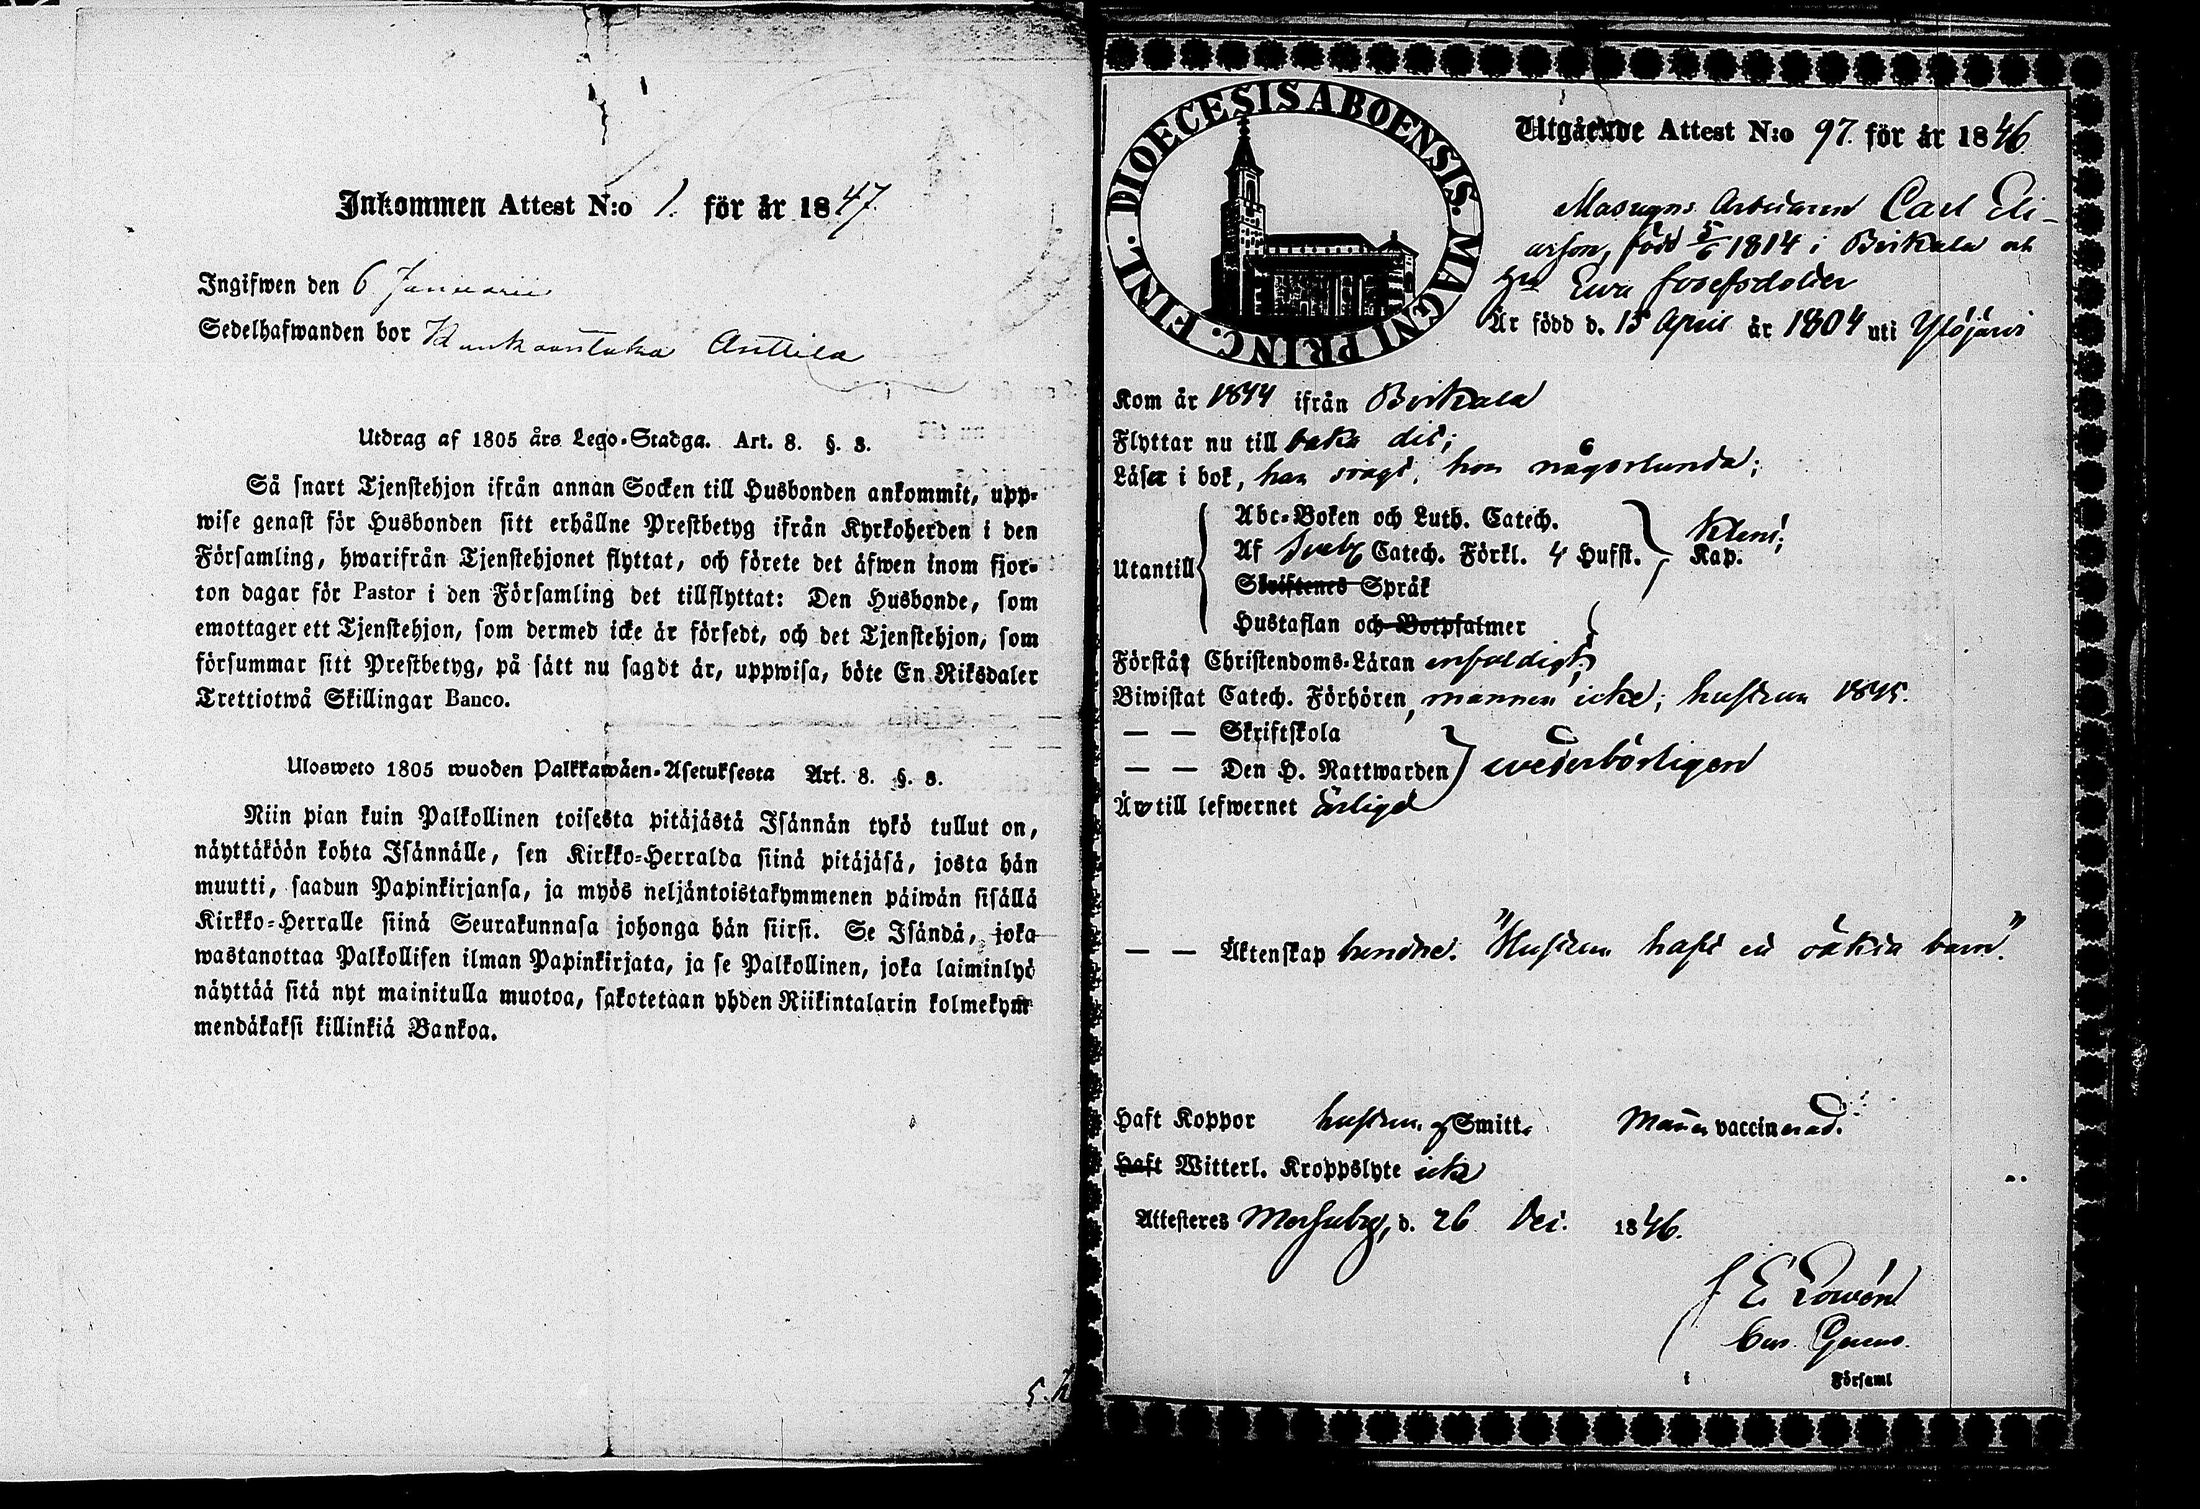 Inkommen Attest N:o 1. för år 1847.
Ingifwen den 6 Januarii
Sedelhafwanden bor Anttila
Utdrag af 1805 års Lego-Stadga. Art. 8. §. 8.
Så snart Tjenstehjon ifrån annan Socken till Husbonden ankommit, upp-
wise genast för Husbonden sitt erhållne Prestbetyg ifrån Kyrkoherden i den
Församling, hwarifrån Tjenstehjonet flyttat, och förete det äfwen inom fjor-
ton dagar för Pastor i den Församling det tillflyttat: Den Husbonde, som
emottager ett Tjenstehjon, som dermed icke är försedt, och det Tjenstehjon, som
försummar sitt Prestbetyg, på sätt nu sagdt är, uppwisa, böte En Riksdaler
Trettiotwå Skillingar Banco.
Ulosweto 1805 wuoden Palkkawäen-Asetuksesta Art. 8. §. 8.
Niin pian kuin Palkollinen toisesta pitäjästä Isännän tykö tullut on,
näyttäköön kohta Isännälle, sen Kirkko-Herralda siinä pitäjäsä, josta hän
muutti, saadun Papinkirjansa, ja myös neljäntoistakymmenen päiwän sisällä
Kirkko-Herralle siinä Seurakunnasa johonga hän siirsi. Se Isändä, joka
wastanottaa Palkollisen ilman Papinkirjata, ja se Palkollinen, joka laiminlyö
näyttää sitä nyt mainitulla muotoa, sakotetaan yhden Riikintalarin kolmekym-
mendäkaksi killinkiä Bankoa.
DIOECESIS ABOENSIS. MAGNI PRINC. FINL.
Utgående Attest N:o 97. för år 1846.
Masugns Arbetaren Carl Eli-
asson, född 5/6 1814 i Birkala och
Ewa Josefsdotter
Är född d. 15 April år 1804 uti Ylöjärvi
Kom år 1844 ifrån Birkala
Flyttar nu till baka dit;
Läser i bok, han svagt, hon någorlunda;
Utantill
Abc-Boken och Luth. Catech.
Af Sveb. Catech. Förkl. 4 Hufst. Kap.
Skriftenes Språk
Hustaflan och Botpsalmer
Förstår Christendoms-Läran enfaldigt;
Biwistat Catech. Förhören, mannen icke; hustrun 1845.
— — Skriftskola
— — Den H. Nattwarden wederbörligen
Är till lefwernet ärligt
— — Äktenskap bundne. "Hustrun haft ett oäkta barn".
Haft Koppor hustrun, af Smitt. Mannen vaccinerad.
Haft Witterl. Kroppslyte icke
Attesteres d. 26 Dec. 1846.
J E
i Församl